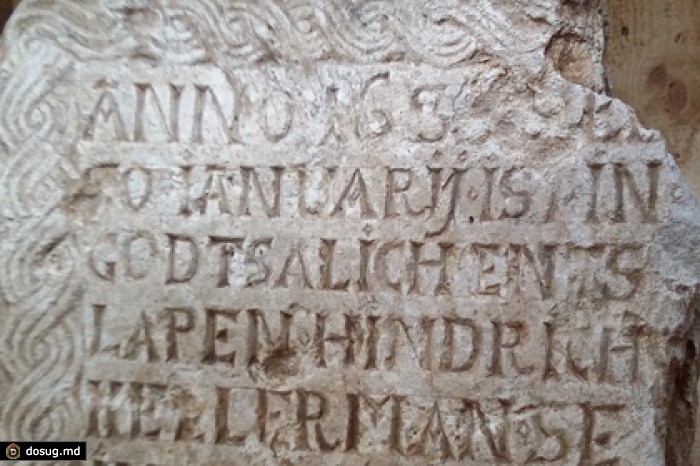 ANNO 163
20 IANUARIJ·IST·IN
GODT SALICH ENTS
LAPEN HINDRICH
HELLERMAN·SE
dosug.md